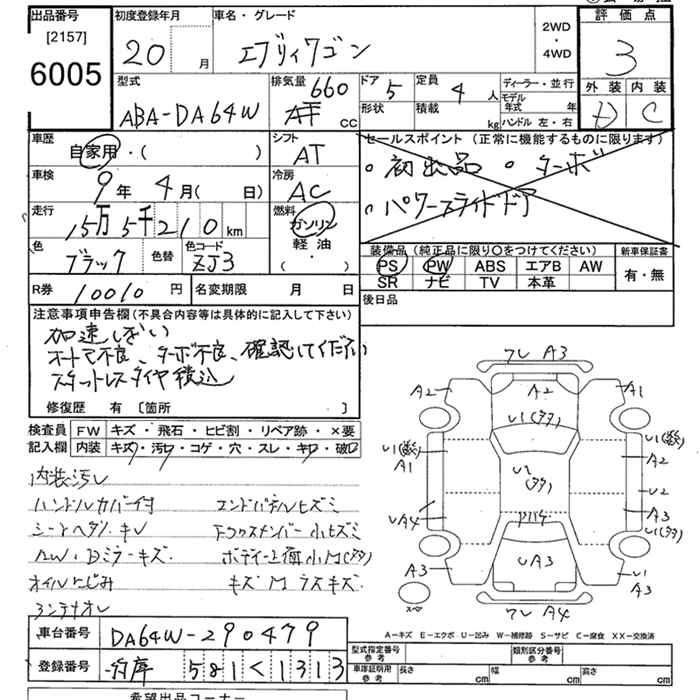 出品番号 初度登録年月 車名・グレード 評価点
[2157]
6005
20 月 エブリィワゴン 2WD・4WD 3
型式 排気量 ドア 定員 ディーラー・並行 外装 内装
ABA-DA64W 660 cc 5 4 人 モデル年式 年 D C
形状 積載 kg ハンドル 左・右
車歴 シフト セールスポイント (正常に機能するものに限ります)
自家用・( ) AT 初出品 ターボ
車検 冷房 パワースライドドア
9年 4月( 日) AC
走行 燃料
15万5千210km ガソリン
軽油
( ・ )
色 色替 色コード 装備品 (純正品に限り○をつけてください) 新車保証書
ブラック ZJ3 PS PW ABS エアB AW 有・無
SR ナビ TV 本革
R券 10010円 名変期限 月 日 後日品
注意事項申告欄(不具合内容等は具体的に記入して下さい)
オートマ不良、ターボ不良、確認してください
スタットレスタイヤ積込
修復歴 有 [箇所 ]
検査員 FW キズ・飛石・ヒビ割・リペア跡・×要
記入欄 内装 キズ・汚・コゲ・穴・スレ・キレ・破レ
内装汚レ
ハンドルカバー付 エンドパネルヒズミ
シートヘタリ・キレ
AW・Dミラーキズ
オイルにじみ
ワレ A3
A2 A2 A1
U1(タタ)
A1 A2
U2
UA4 A3
UA3
A3 U1 A3
ワレ A4
スペア
A-キズ E-エクボ U-凹み W-補修跡 S-サビ C-腐食 XX-交換済
車台番号 DA64W-290479
登録番号 581 く 1313
型式指定番号 参考 類別区分番号 参考
車庫証明用 参考 長さ cm 幅 cm 高さ cm
希望出品コーナー